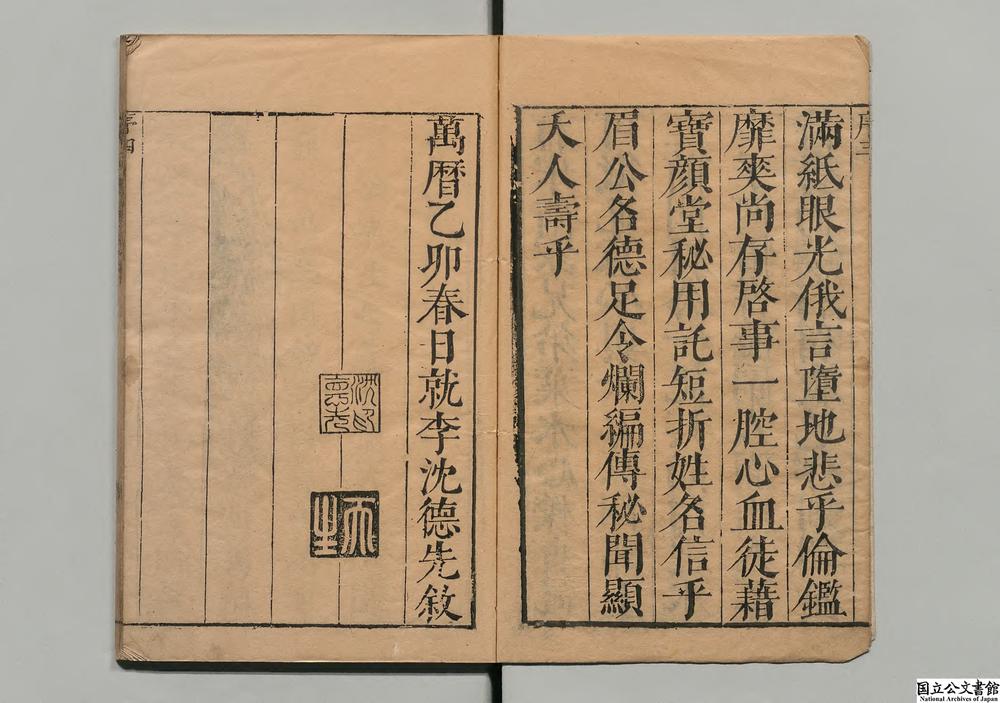 滿紙眼光俄言墮地悲乎倫鑑
靡爽尚存啓事一腔心血徒藉
寶顏堂秘用託短折姓名信乎
眉公名德足令爛編傳秘聞顯
夭人壽乎
萬曆乙卯春日就李沈德先敘
序三
序四
国立公文書館
National Archives of Japan